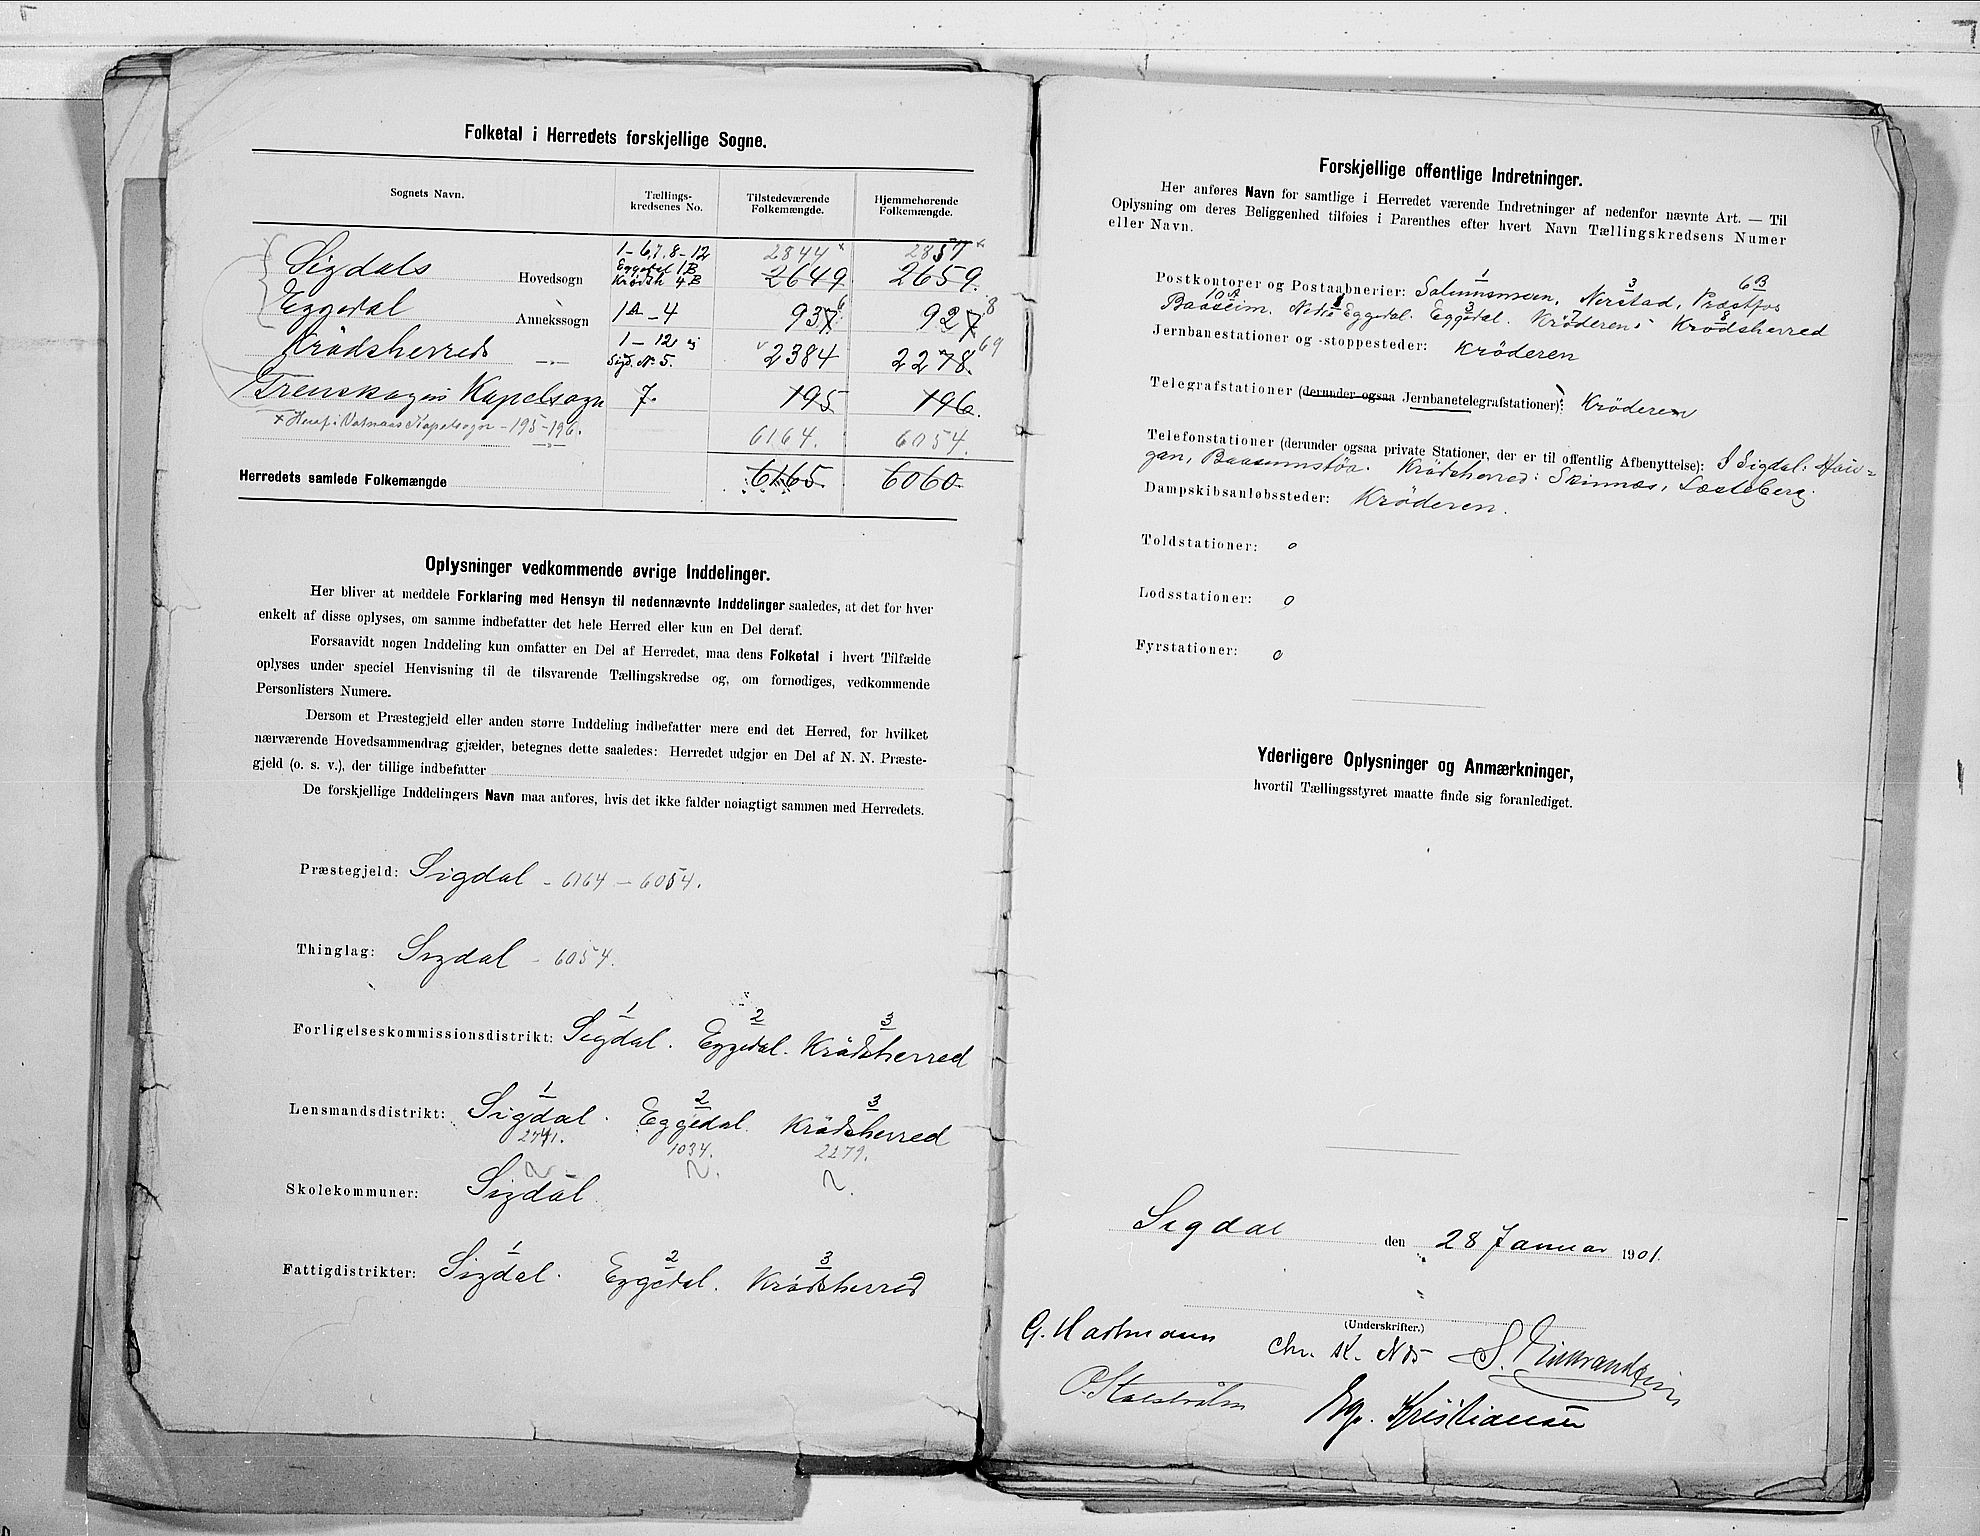 Folketal i Herredets forskjellige Sogne.
Sognets Navn. Tællings-kredsenes No. Tilstedeværende Folkemængde. Hjemmehørende Folkemængde.
1-6,7,8-12 2844 x 2857 x
Sigdals Hovedsogn Eggedal 1B Krødsh 4B 2649 2659.
Eggedal Annekssogn 1A-4 937 6 927 8
Krødsherreds 1-12 Sigd. No 5. 2384 2278. 69
Kapelsogn 7. 195 196.
x Heraf i Vatnaas Kapelsogn - 195-196.
6164. 6054.
Herredets samlede Folkemængde 6165. 6060.
Oplysninger vedkommende øvrige Inddelinger.
Her bliver at meddele Forklaring med Hensyn til nedennævnte Inddelinger saaledes, at det for hver
enkelt af disse oplyses, om samme indbefatter det hele Herred eller kun en Del deraf.
Forsaavidt nogen Inddeling kun omfatter en Del af Herredet, maa dens Folketal i hvert Tilfælde
oplyses under speciel Henvisning til de tilsvarende Tællingskredse og, om fornødiges, vedkommende
Personlisters Numere.
Dersom et Præstegjeld eller anden større Inddeling indbefatter mere end det Herred, for hvilket
nærværende Hovedsammendrag gjælder, betegnes dette saaledes: Herredet udgjør en Del af N. N. Præste-
gjeld (o. s. v.), der tillige indbefatter
De forskjellige Inddelingers Navn maa anføres, hvis det ikke falder nøiagtigt sammen med Herredets.
Præstegjeld: Sigdal - 6164 - 6054.
Thinglag: Sigdal - 6054.
1 2 3
Forligelseskommissionsdistrikt: Sigdal. Eggedal. Krødsherred
1 2 3
Lensmandsdistrikt: Sigdal. Eggedal. Krødsherred
2741. 1034. 2279.
Skolekommuner: Sigdal
1 2 3
Fattigdistrikter: Sigdal. Eggedal. Krødsherred
Forskjellige offentlige Indretninger.
Her anføres Navn for samtlige i Herredet værende Indretninger af nedenfor nævnte Art. — Til
Oplysning om deres Beliggenhed tilføies i Parenthes efter hvert Navn Tællingskredsens Numer
eller Navn.
1 3 6B
Postkontorer og Postaabnerier: Nerstad, Præstfos
10A 1 3 7 8
Eggedal. Eggedal. Krøderen Krødsherred
Jernbanestationer og -stoppesteder: Krøderen
Telegrafstationer (derunder ogsaa Jernbanetelegrafstationer): Krøderen
Telefonstationer (derunder ogsaa private Stationer, der er til offentlig Afbenyttelse): I Sigdal: Hau=
gan, Krødsherred: Skinnes,
Dampskibsanløbssteder: Krøderen.
Toldstationer: 0
Lodsstationer: 0
Fyrstationer: 0
Yderligere Oplysninger og Anmærkninger,
hvortil Tællingsstyret maatte finde sig foranlediget.
Sigdal den 28 Januar 1901.
(Underskrifter.)
G. Hartmann Chr. K. Næs S.
O. Kristiansen